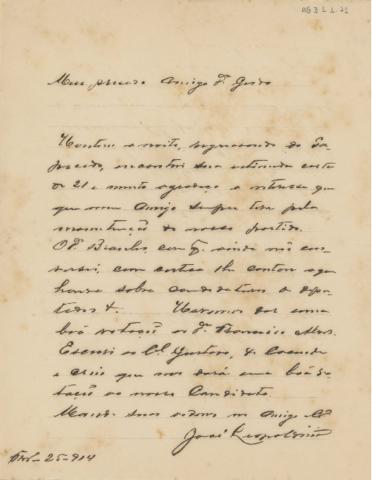 Meu prezado Amigo Dr. Guido
Hontem a noite, regressando do Ta-
encontrei sua estimada carta
de 21 e muito agradeço o interesse que
que meu Amigo sempre teve pela
manutenção do nosso partido.
O Dr. Brasilio, com qm. ainda não con-
versei, com certeza lhe contou o que
houve sobre candidatura a depu-
tados &. Havemos dar uma
boa votação ao Dr. Francisco
Escrevi ao Cel. Gustavo, de
e creio que nos dará uma boa vo-
tação ao nosso Candidato.
Mande suas ordens ao Amigo
José Leopoldino
25-914